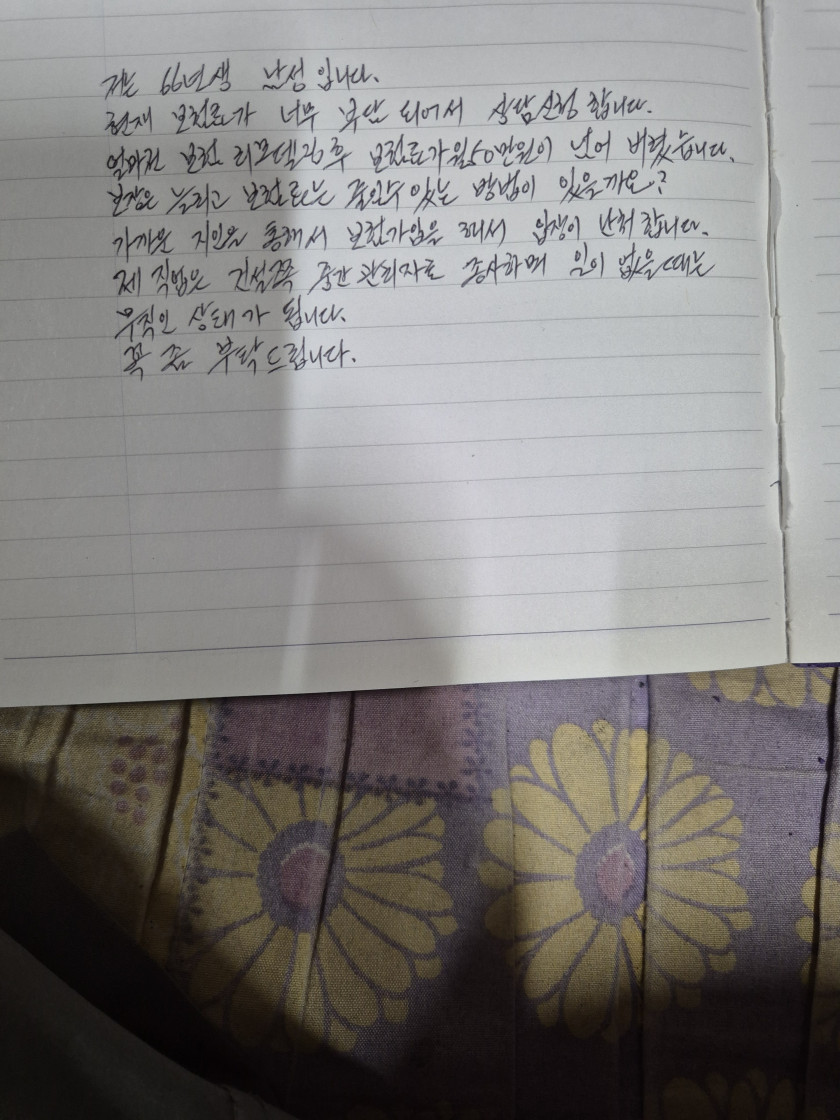 저는 66년생 남성 입니다.
현재 보험료가 너무 부담 되어서 상담신청 합니다.
얼마전 보험 리모델링 후 보험료가 월50만원이 넘어 버렸습니다.
보장은 늘리고 보험료는 줄일수 있는 방법이 있을까요?
가까운 지인을 통해서 보험가입을 해서 입장이 난처 합니다.
제 직업은 건설쪽 중간 관리자로 종사하며 일이 없을때는
무직인 상태가 됩니다.
꼭 좀 부탁드립니다.